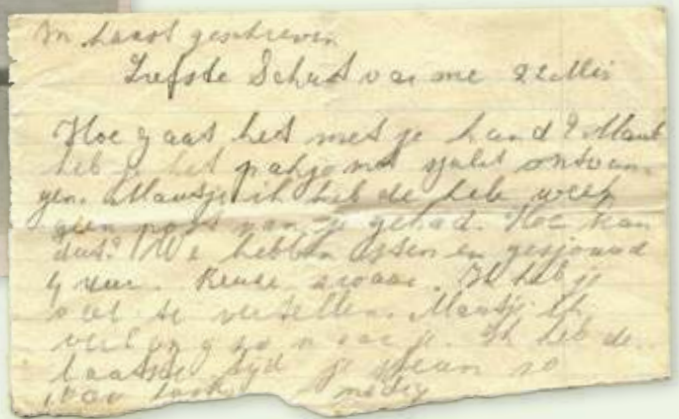 In haast geschreven
Liefste Schat van me
Hoe gaat het met je hand? Maus
heb je het pakje met ontvan-
gen. Mausje ik heb de hele week
geen post van je gehad. Hoe kan
dat? We hebben assen en gesjouwd
4 uur. Reuze zwaar. Ik heb je
veel te vertellen. Mausje ik
verlang zo naar je. Ik heb de
laatste tijd je steun zo
nodig